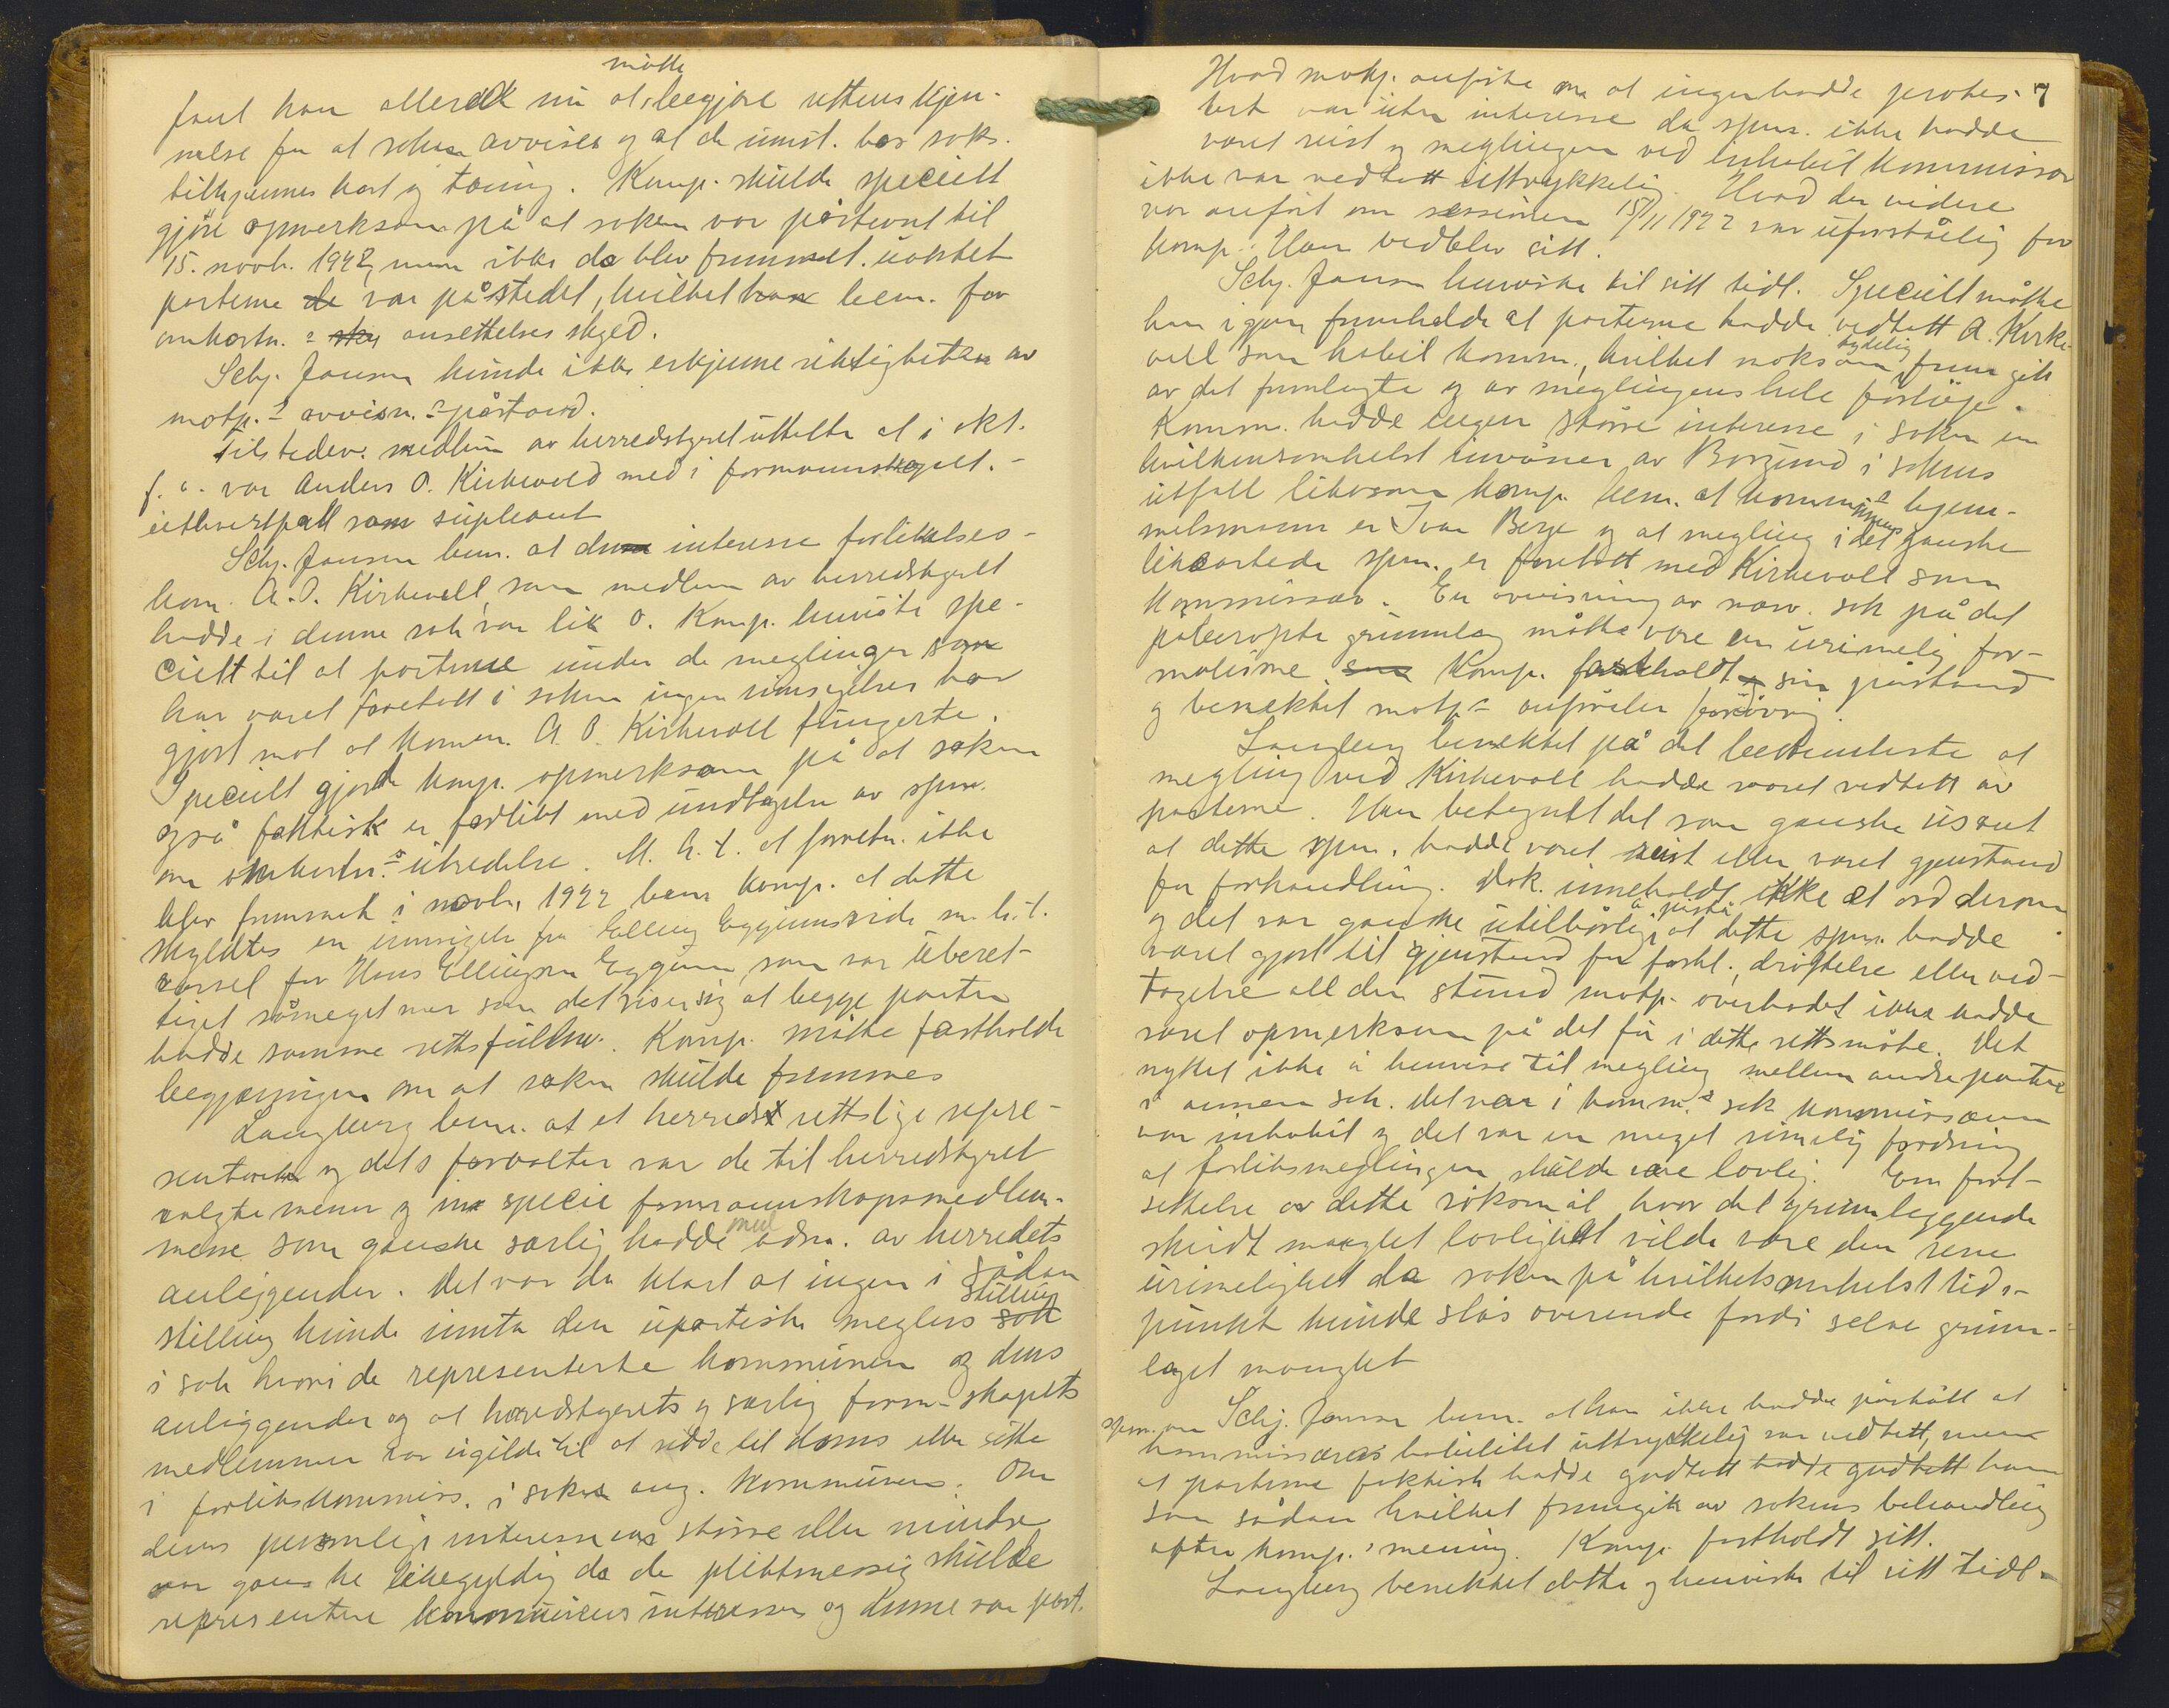 fant han allerede nu at måtte begjære rettens kjen-
nelse for at saken avvises og at de innst. bør saks.
tilkjennes kost og tæring. Komp. skulde specielt
gjøre opmerksom på at saken var påstevnt til
15. novbr. 1922, men ikke da blev fremmet uaktet
parterne var på stedet, hvilket bem. for
omkostn.s ansettelses skyld.
Schj. Jansen kunde ikke erkjenne riktigheten av
motp.s avvisn.s påstand.
Tilstedev. medlem av herredstyret uttalte at i okt.
f. å. var Anders O. Kirkevold med i formannskapet.-
iethvertfall som supleant
Schj. Jansen bem. at den interesse forlikelses-
kom. A. O. Kirkevoll som medlem av herredstyret
hadde i denne sak var lik 0. Komp. henviste spe-
cielt til at parterne under de meglinger som
har været foretatt i saken ingen innsigelser har
gjort mot at komm. A. O. Kirkevoll fungerte.
Specielt gjorde komp. opmerksom på at saken
også faktisk er forlikt med undtagelse av spm.
om omkostn.s utredelse. M. h. t. at forretn. ikke
blev fremmet i novbr. 1922 bem. komp. at dette
skyldtes en innsigelse fra Elling Eggjenns side m. h. t.
varsel for Hans Ellingsen Eggjenn, som var uberet-
tiget såmeget mer som det viser sig at begge parter
hadde samme rettsfullm. Komp. måtte fastholde
begjæringen om at saken skulde fremmes
Langberg bem. at et herreds rettslige repre-
sentanter og dets forvalter var de til herredstyret
valgte menn og in specie formannskapsmedlem-
mene som ganske særlig hadde med adm. av herredets
anliggender. Det var da klart at ingen i sådan
stilling kunde innta den upartiske meglers stilling
i sak hvori de representerte kommunen og dens
anliggender og at herredstyrets og særlig form.skapets
medlemmer var ugilde til at sidde til doms eller sitte
i forlikskommiss. i saker ang. kommunen. Om
deres personlige interesse var større eller mindre
var ganske likegyldig da de pliktmessig skulde
representere kommunens interesser og denne var part.
7
Hvad motp. anførte om at ingen hadde protes-
tert var uten interesse da spm. ikke hadde
været reist og meglingen ved inhabil kommissær
ikke var vedtatt uttrykkelig. Hvad der videre
var anført om sessionen 15/11 1922 var uforståelig for
komp. Han vedblev sitt.
Schj. Jansen henviste til sitt tidl. Specielt måtte
han igjen fremholde at parterne hadde vedtatt A. Kirke-
voll som habil komm., hvilket noksom tydelig fremgik
av det fremlagte og av meglingens hele forløp.
Komm. hadde ingen større interesse i saken enn
hvilkensomhelst innvåner av Borgund i sakens
utfall likesom komp. bem. at kommunens lagem-
melsmann er Ivar Berge og at megling i det ganske
likeartede spm. er foretatt med Kirkevoll som
kommissær. En avvisning av nærv. sak på det
påberopte grunnlag måtte være en urimelig for-
malisme. Komp. fastholdt sin påstand
og benektet motp.s anførsler forøvrig.
Langberg benektet på det bestemteste at
megling ved Kirkevoll hadde været vedtatt av
parterne. Han betegnet det som ganske usant
at dette spm. hadde været reist eller været gjenstand
for forhandling. Dok. inneholdt ikke et ord derom
og det var ganske utilbørlig å påstå at dette spm. hadde
været gjort til gjenstand for forhl., drøftelse eller ved-
tagelse all den stund motp. overhodet ikke hadde
været opmerksom på det før i dette rettsmøte. Det
nyttet ikke å henvise til megling mellem andre parter
i annen sak. Det var i komm.s sak kommissæren
var inhabil og det var en meget rimelig fordring
at forliksmeglingen skulde være lovlig. En fort-
settelse av dette søksmål hvor det grunnleggende
skridt manglet lovlighet vilde være den rene
urimelighet da saken på hvilketsomhelst tids-
punkt kunde slås overende fordi selve grunn-
laget manglet
Schj. Jansen bem. at han ikke hadde påstått at
spm. om kommissærens habilitet uttrykkelig var vedtatt, men
at parterne faktisk hadde godtatt hadde godtatt ham
som sådan hvilket fremgik av sakens behandling
efter komp.' mening. Komp. fastholdt sitt.
Langberg benektet dette og henviste til sitt tidl.